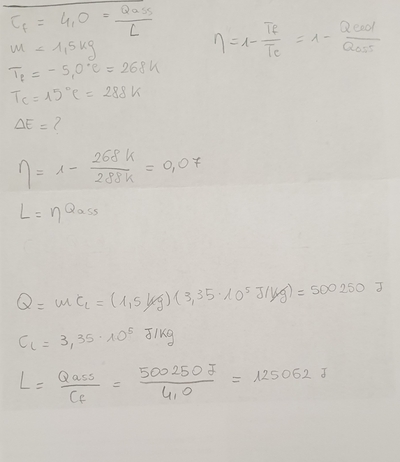 Cf = 4,0 = Qass / L
m = 1,5 kg
Tf = -5,0°C = 268 K
Tc = 15°C = 288 K
ΔE = ?
η = 1 - Tf / Tc = 1 - Qced / Qass
η = 1 - 268 K / 288 K = 0,07
L = η Qass
Q = m CL = (1,5 kg) (3,35 · 10⁵ J/kg) = 500250 J
CL = 3,35 · 10⁵ J/kg
L = Qass / Cf = 500250 J / 4,0 = 125062 J